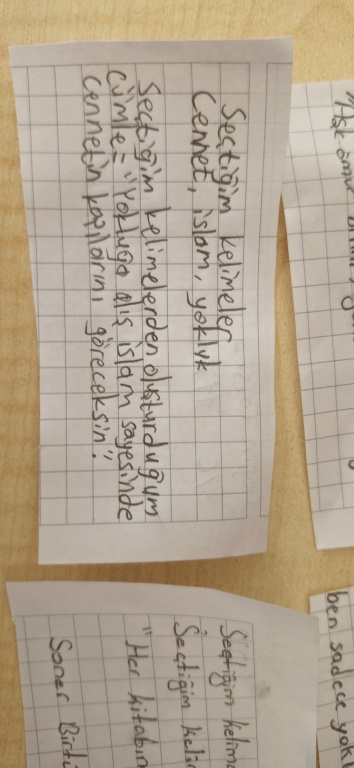 Seçtiğim kelimeler
Cennet, islam, yokluk
Seçtiğim kelimelerden oluşturduğum
cümle = "Yokluğa alış islam sayesinde
cennetin kapılarını göreceksin."
"Aşk
ben sadece
Seçtiğim
Seçtiğim
"Her kitabın
Soner